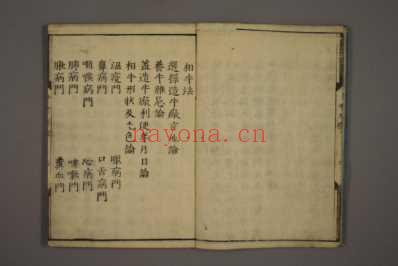 相牛法
選擇造牛廠方向論
養牛雜忌論
蓋造牛廠利便年月日論
相牛形狀及毛色論
瘟疫門 眼病門
鼻病門 口舌病門
咽喉病門 心病門
肺病門 咳嗽門
脹病門 糞血門
nayona.cn